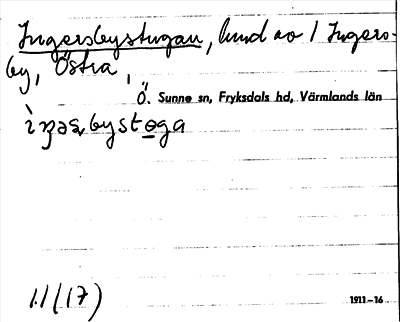 Ingersbystugan, hmd av 1 Ingers-
by, Östra,
Ö. Sunne sn, Fryksdals hd, Värmlands län
ìŋəʂbystoga
1.1(17)
1911-16